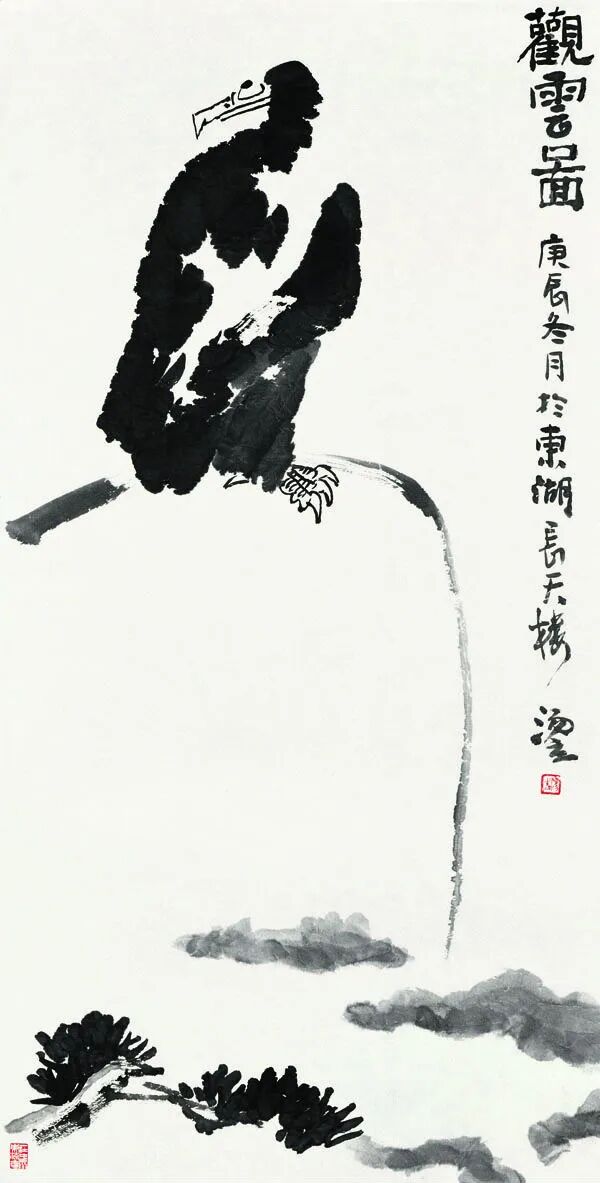 觀雲圖
庚辰冬月於東湖長天樓
湯立